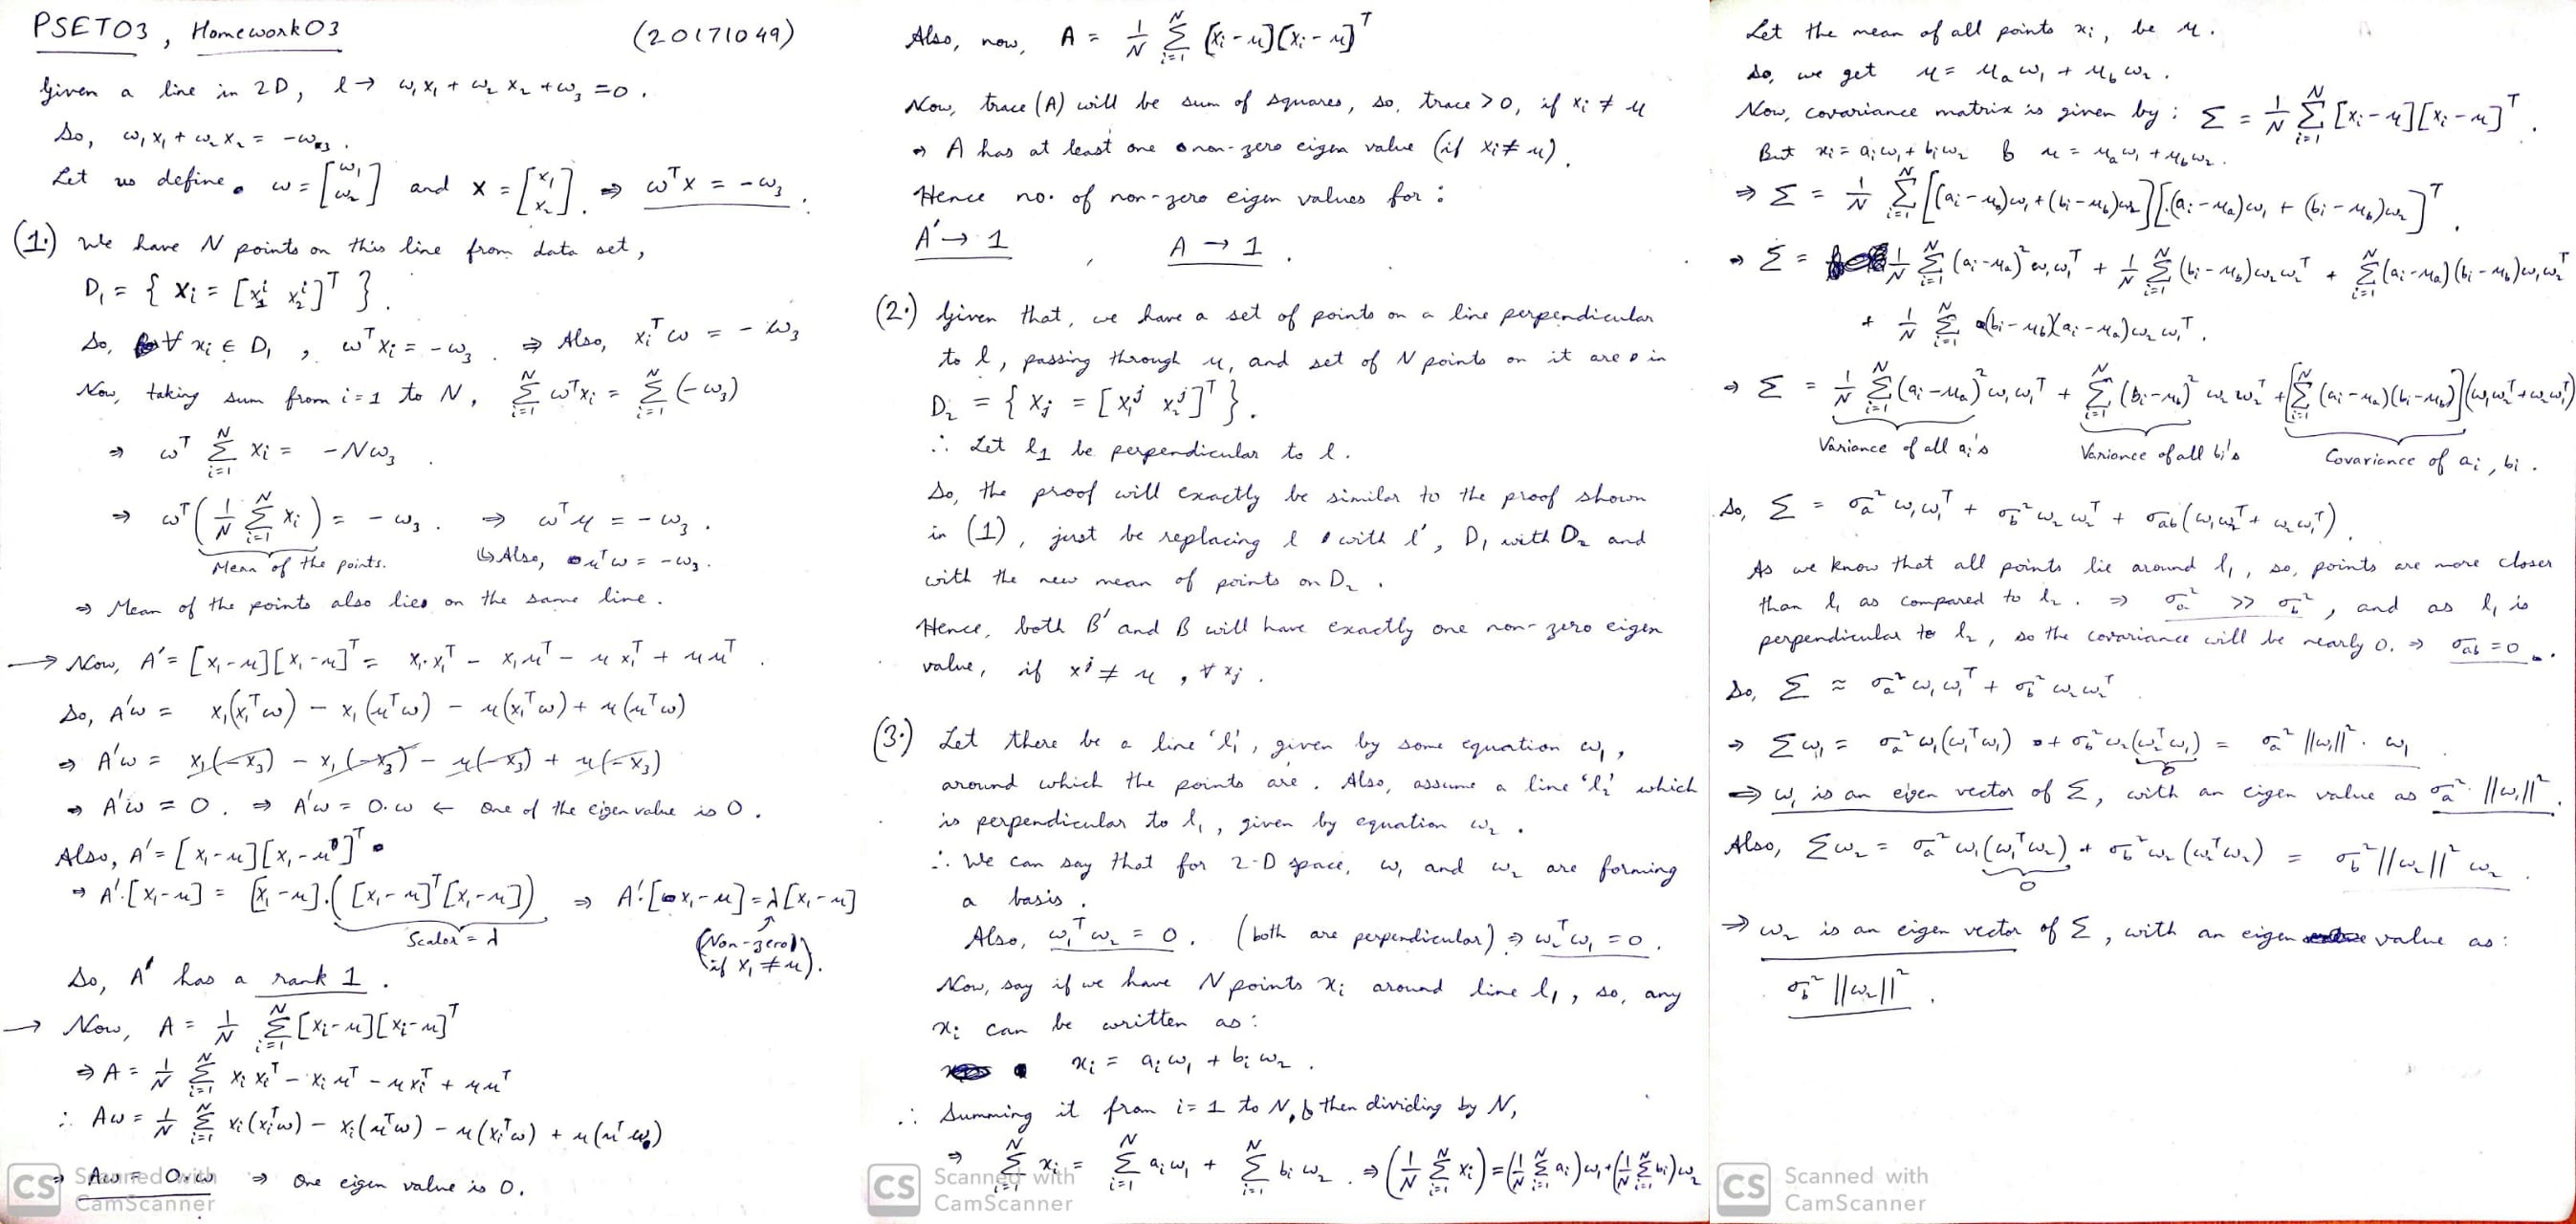 PSET03, Homework03 (20171049)
Given a line in 2D, l → ω₁x₁ + ω₂x₂ + ω₃ = 0.
So, ω₁x₁ + ω₂x₂ = -ω₃.
Let us define ω = [ω₁ ω₂] and x = [x₁ x₂]. ⇒ ωᵀx = -ω₃.
(1.) We have N points on this line from data set,
D₁ = { xᵢ = [x₁ⁱ x₂ⁱ]ᵀ }.
So, ∀ xᵢ ∈ D₁, ωᵀxᵢ = -ω₃. ⇒ Also, xᵢᵀω = -ω₃
Now, taking sum from i=1 to N, Σᵢ₌₁ᴺ ωᵀxᵢ = Σᵢ₌₁ᴺ (-ω₃)
⇒ ωᵀ Σᵢ₌₁ᴺ xᵢ = -Nω₃.
⇒ ωᵀ(1/N Σᵢ₌₁ᴺ xᵢ) = -ω₃. ⇒ ωᵀμ = -ω₃.
Mean of the points. ↳ Also, μᵀω = -ω₃.
⇒ Mean of the points also lies on the same line.
→ Now, A' = [x₁-μ][x₁-μ]ᵀ = x₁·x₁ᵀ - x₁μᵀ - μx₁ᵀ + μμᵀ.
So, A'ω = x₁(x₁ᵀω) - x₁(μᵀω) - μ(x₁ᵀω) + μ(μᵀω)
⇒ A'ω = x₁(-x₃) - x₁(-x₃) - μ(-x₃) + μ(-x₃)
⇒ A'ω = 0. ⇒ A'ω = 0·ω ← One of the eigen value is 0.
Also, A' = [x₁-μ][x₁-μ]ᵀ
⇒ A'·[x₁-μ] = [x₁-μ]·([x₁-μ]ᵀ[x₁-μ]) ⇒ A'·[x₁-μ] = λ[x₁-μ]
Scalar = λ (Non-zero if x₁ ≠ μ).
So, A' has a rank 1.
→ Now, A = 1/N Σᵢ₌₁ᴺ [xᵢ-μ][xᵢ-μ]ᵀ
⇒ A = 1/N Σᵢ₌₁ᴺ xᵢxᵢᵀ - xᵢμᵀ - μxᵢᵀ + μμᵀ
∴ Aω = 1/N Σᵢ₌₁ᴺ xᵢ(xᵢᵀω) - xᵢ(μᵀω) - μ(xᵢᵀω) + μ(μᵀω)
⇒ Aω = 0·ω ⇒ One eigen value is 0.
CS Scanned with
CamScanner
Also, now, A = 1/N Σᵢ₌₁ᴺ [xᵢ-μ][xᵢ-μ]ᵀ
Now, trace(A) will be sum of squares, so, trace > 0, if xᵢ ≠ μ
⇒ A has at least one non-zero eigen value (if xᵢ ≠ μ).
Hence no. of non-zero eigen values for:
A' → 1, A → 1.
(2.) Given that, we have a set of points on a line perpendicular
to l, passing through μ, and set of N points on it are in
D₂ = { xⱼ = [x₁ʲ x₂ʲ]ᵀ }.
∴ Let l₁ be perpendicular to l.
So, the proof will exactly be similar to the proof shown
in (1), just be replacing l with l', D₁ with D₂ and
with the new mean of points on D₂.
Hence, both B' and B will have exactly one non-zero eigen
value, if xʲ ≠ μ, ∀ xⱼ.
(3.) Let there be a line 'l₁', given by some equation ω₁,
around which the points are. Also, assume a line 'l₂' which
is perpendicular to l₁, given by equation ω₂.
∴ We can say that for 2-D space, ω₁ and ω₂ are forming
a basis.
Also, ω₁ᵀω₂ = 0. (both are perpendicular) ⇒ ω₂ᵀω₁ = 0.
Now, say if we have N points xᵢ around line l₁, so, any
xᵢ can be written as:
xᵢ = aᵢω₁ + bᵢω₂.
∴ Summing it from i=1 to N, & then dividing by N,
⇒ Σᵢ₌₁ᴺ xᵢ = Σᵢ₌₁ᴺ aᵢω₁ + Σᵢ₌₁ᴺ bᵢω₂. ⇒ (1/N Σᵢ₌₁ᴺ xᵢ) = (1/N Σᵢ₌₁ᴺ aᵢ)ω₁ + (1/N Σᵢ₌₁ᴺ bᵢ)ω₂
CS Scanned with
CamScanner
Let the mean of all points xᵢ, be μ.
So, we get μ = μₐω₁ + μ_bω₂.
Now, covariance matrix is given by: Σ = 1/N Σᵢ₌₁ᴺ [xᵢ-μ][xᵢ-μ]ᵀ.
But xᵢ = aᵢω₁ + bᵢω₂ & μ = μₐω₁ + μ_bω₂.
⇒ Σ = 1/N Σᵢ₌₁ᴺ [(aᵢ-μₐ)ω₁ + (bᵢ-μ_b)ω₂][(aᵢ-μₐ)ω₁ + (bᵢ-μ_b)ω₂]ᵀ.
⇒ Σ = 1/N Σᵢ₌₁ᴺ (aᵢ-μₐ)²ω₁ω₁ᵀ + 1/N Σᵢ₌₁ᴺ (bᵢ-μ_b)ω₂ω₂ᵀ + Σᵢ₌₁ᴺ (aᵢ-μₐ)(bᵢ-μ_b)ω₁ω₂ᵀ
+ 1/N Σᵢ₌₁ᴺ (bᵢ-μ_b)(aᵢ-μₐ)ω₂ω₁ᵀ.
⇒ Σ = 1/N Σᵢ₌₁ᴺ (aᵢ-μₐ)²ω₁ω₁ᵀ + Σᵢ₌₁ᴺ (bᵢ-μ_b)²ω₂ω₂ᵀ + [Σᵢ₌₁ᴺ (aᵢ-μₐ)(bᵢ-μ_b)](ω₁ω₂ᵀ + ω₂ω₁ᵀ)
Variance of all aᵢ's Variance of all bᵢ's Covariance of aᵢ, bᵢ.
So, Σ = σₐ²ω₁ω₁ᵀ + σ_b²ω₂ω₂ᵀ + σ_ab(ω₁ω₂ᵀ + ω₂ω₁ᵀ).
As we know that all points lie around l₁, so, points are more closer
than l₁ as compared to l₂. ⇒ σₐ² >> σ_b², and as l₁ is
perpendicular to l₂, so the covariance will be nearly 0. ⇒ σ_ab = 0.
So, Σ ≈ σₐ²ω₁ω₁ᵀ + σ_b²ω₂ω₂ᵀ.
⇒ Σω₁ = σₐ²ω₁(ω₁ᵀω₁) + σ_b²ω₂(ω₂ᵀω₁) = σₐ²||ω₁||²·ω₁.
0
⇒ ω₁ is an eigen vector of Σ, with an eigen value as σₐ²·||ω₁||².
Also, Σω₂ = σₐ²ω₁(ω₁ᵀω₂) + σ_b²ω₂(ω₂ᵀω₂) = σ_b²||ω₂||²ω₂.
0
⇒ ω₂ is an eigen vector of Σ, with an eigen value as:
σ_b²||ω₂||².
CS Scanned with
CamScanner